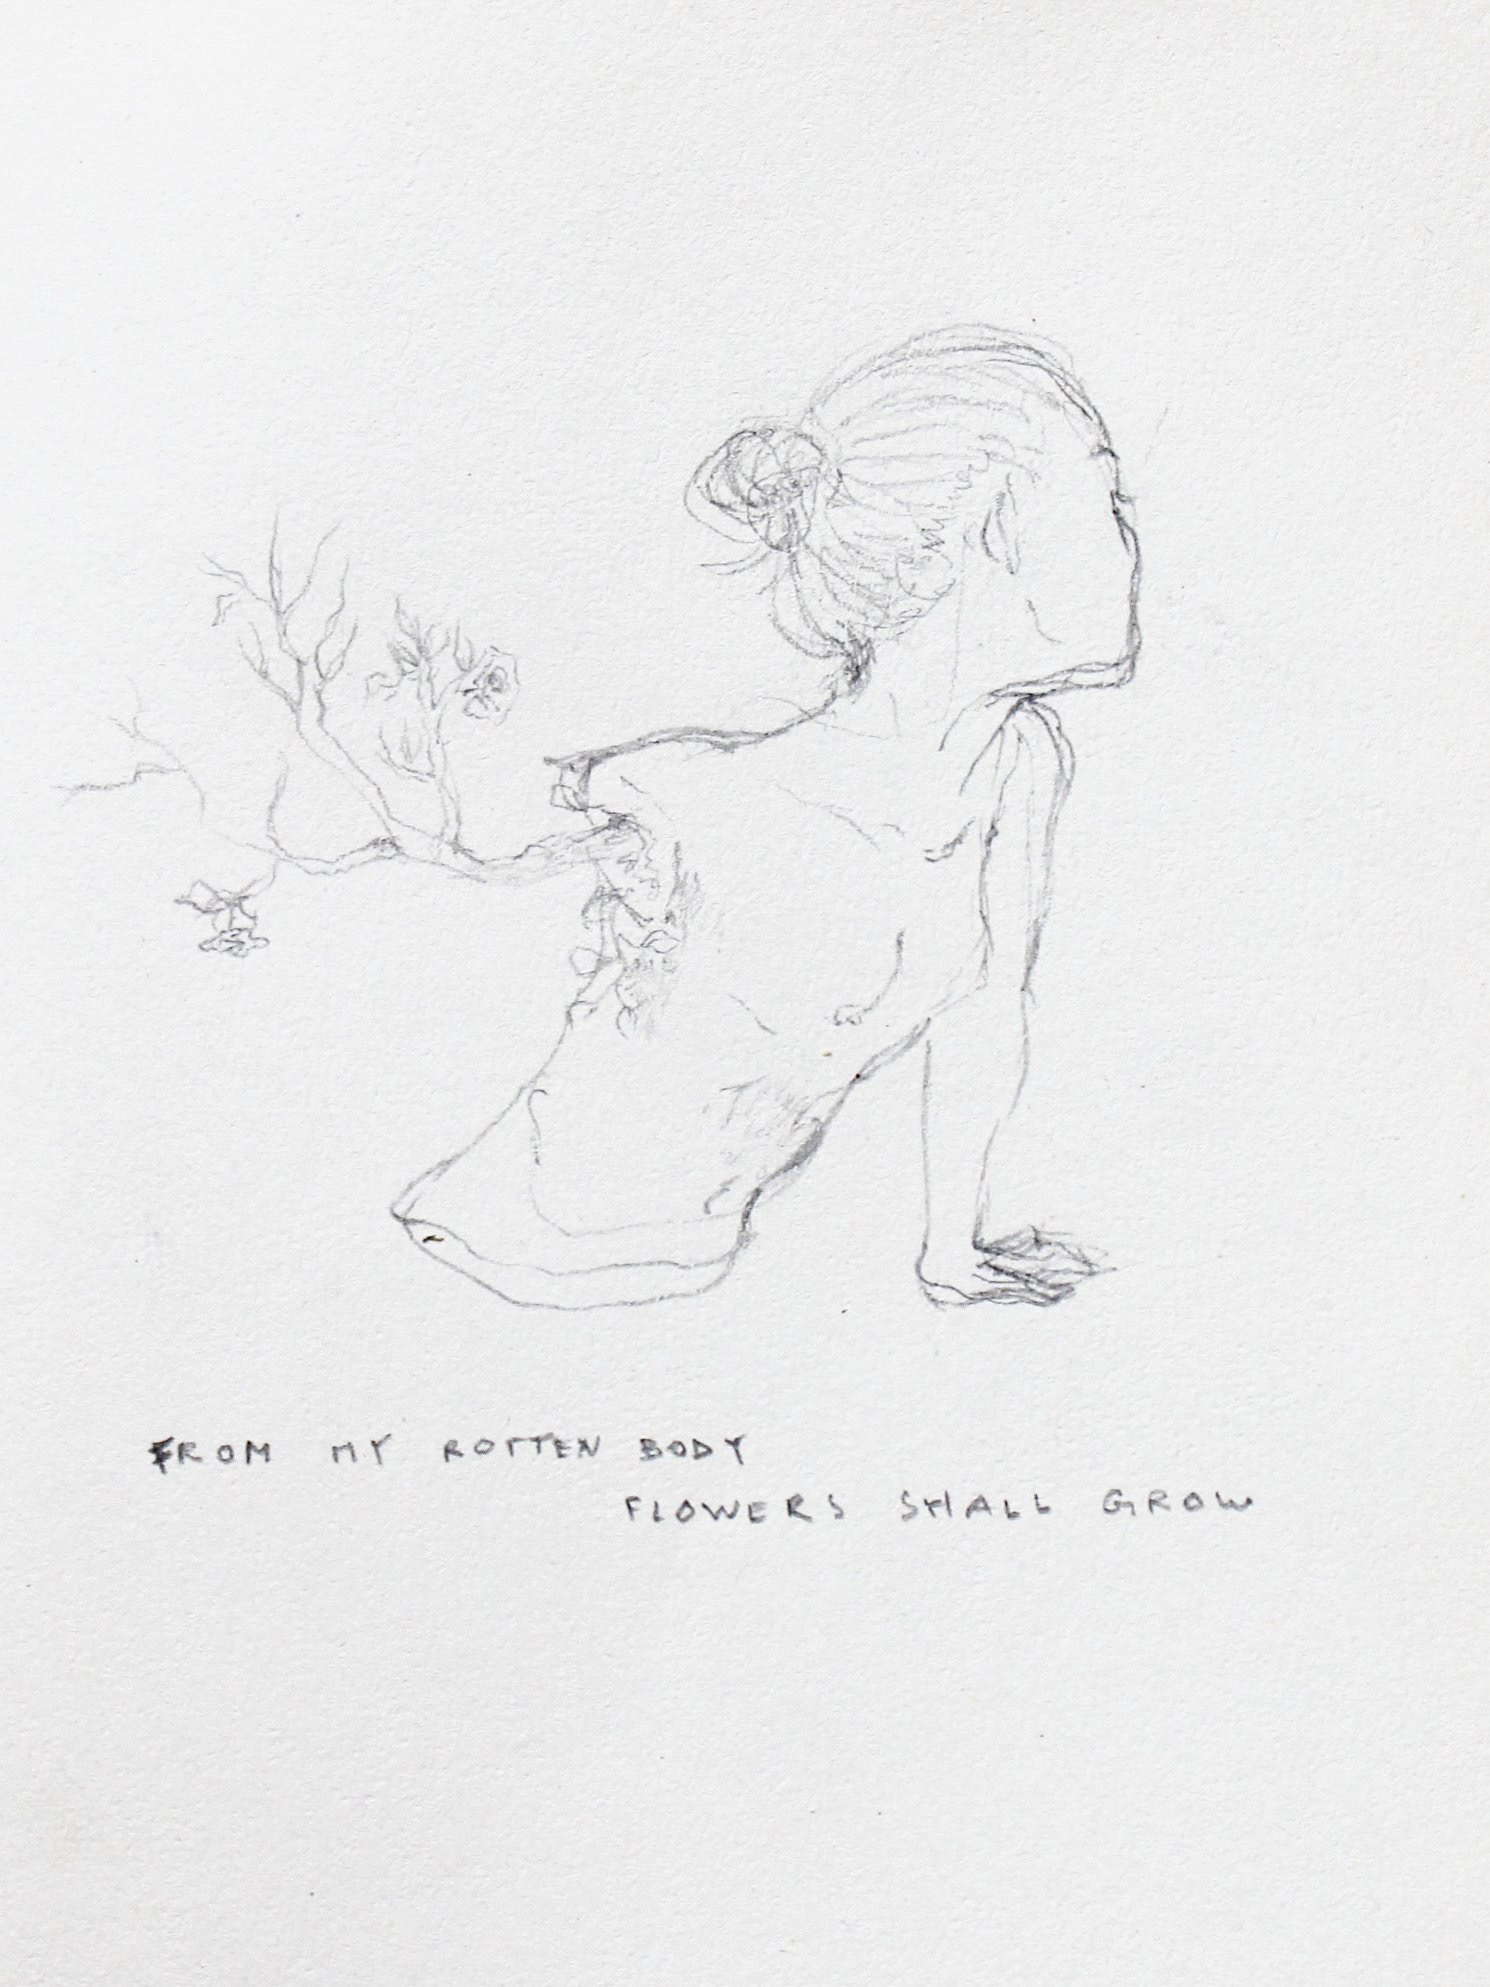 FROM MY ROTTEN BODY
FLOWERS SHALL GROW